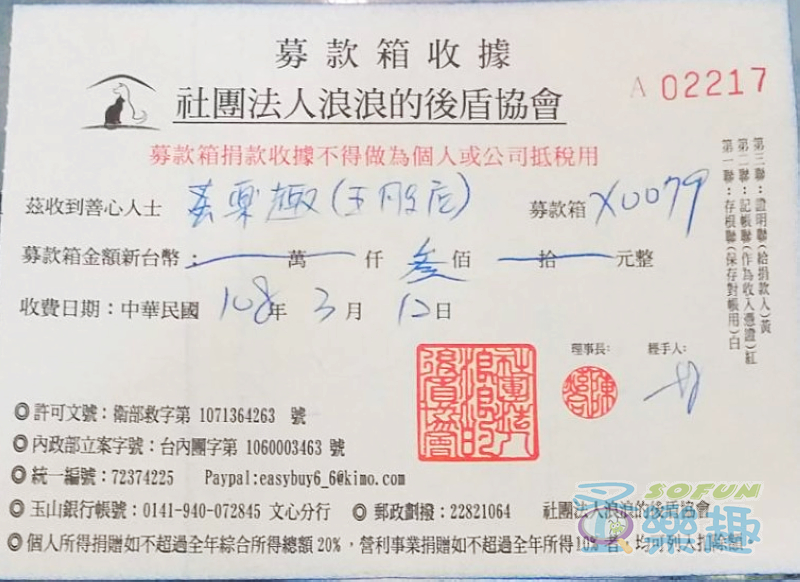 募款箱收據
社團法人浪浪的後盾協會
A 02217
募款箱捐款收據不得做為個人或公司抵稅用
茲收到善心人士 樂趣(王股店) 募款箱 X0079
募款箱金額新台幣：萬 仟 叁佰 拾 元整
收費日期：中華民國 108年 3月 12日
第三聯：證明聯(給捐款人)黃
第二聯：記帳聯(作為收入憑證)紅
第一聯：存根聯(保存對帳用)白
理事長： 經手人：
社團法人浪浪的後盾協會
◎許可文號：衛部救字第 1071364263 號
◎內政部立案字號：台內團字第 1060003463 號
◎統一編號：72374225 Paypal:easybuy6_6@kimo.com
◎玉山銀行帳號：0141-940-072845 文心分行 ◎郵政劃撥：22821064 社團法人浪浪的後盾協會
◎個人所得捐贈如不超過全年綜合所得總額20%，營利事業捐贈如不超過全年所得10%者，均可列入扣除額
SOFUN
樂趣